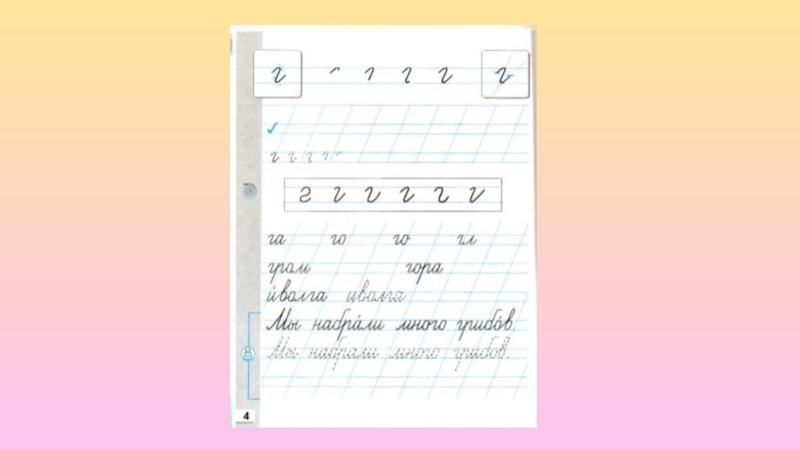 г г г г
г г г г
г г г г г г
га го го гл
гром гора
и́волга иволга
Мы набра́ли много грибо́в.
Мы набрали много грибов.
4